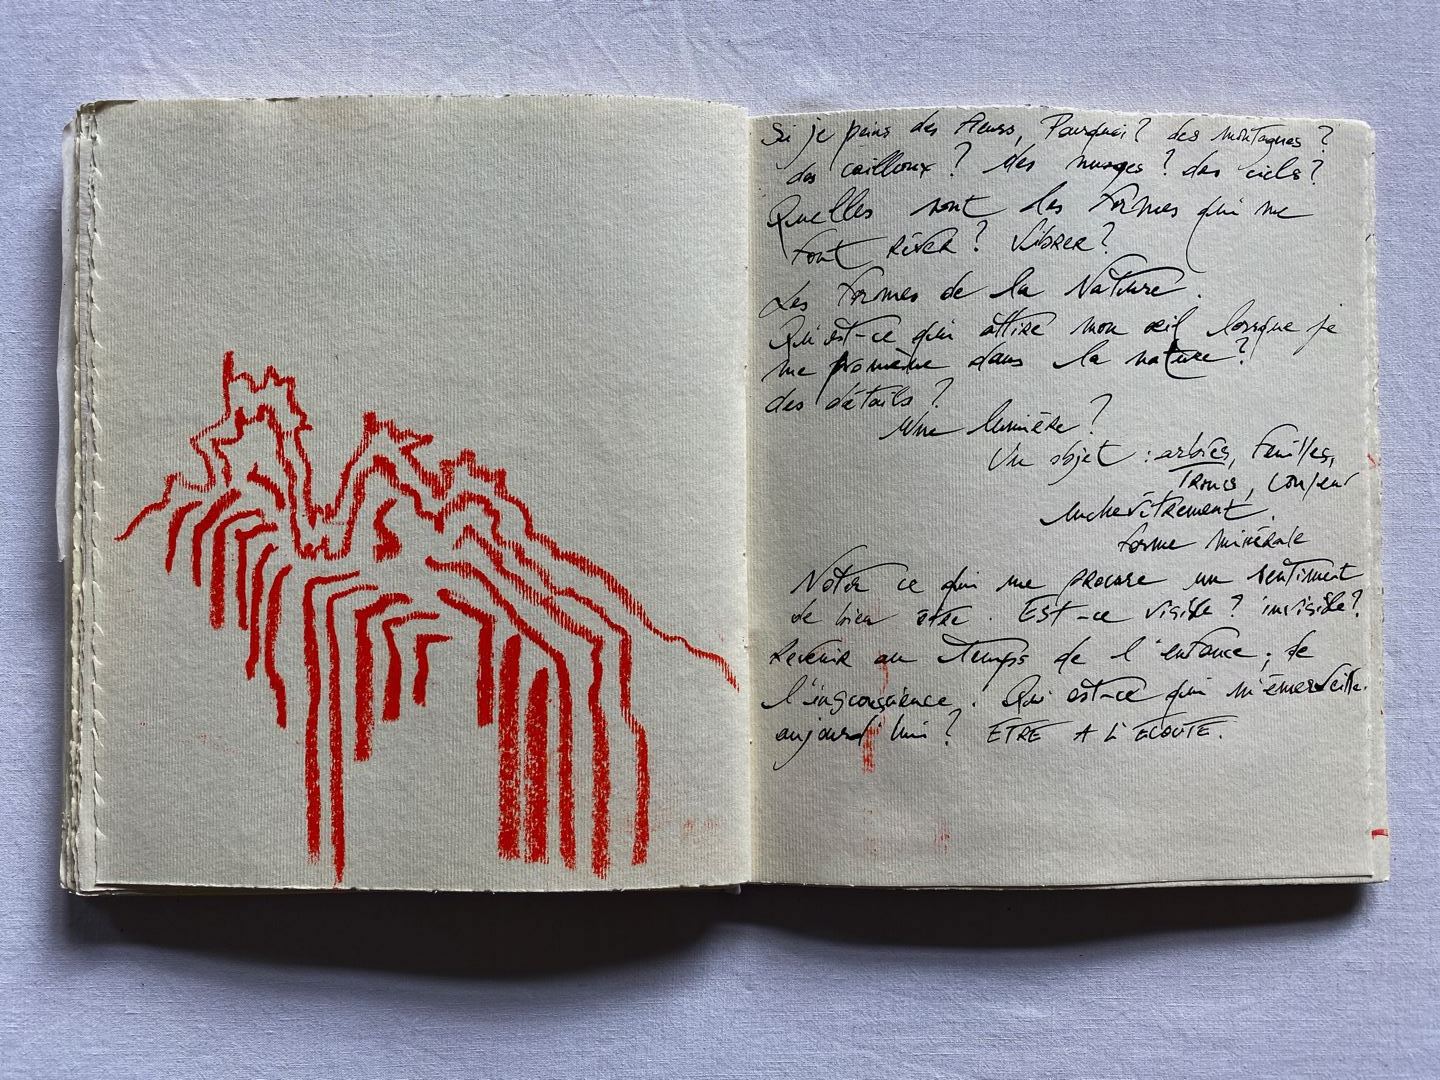 Si je peins des fleurs, Pourquoi? des montagnes?
des cailloux? des nuages? des ciels?
Quelles sont les formes qui me
font RÊVER? VIBRER?
Les formes de la Nature.
Qu'est-ce qui attire mon œil lorsque je
me promène dans la nature?
des détails?
Une lumière?
Un objet : arbres, feuilles,
Troncs, couleur
enchevêtrement,
forme minérale
Noter ce qui me procure un sentiment
de bien être. EST-ce visible? invisible?
Revenir au Temps de l'enfance, de
l'insconscience. Qui est-ce qui m'émerveille
aujourd'hui? ETRE A L'ECOUTE.